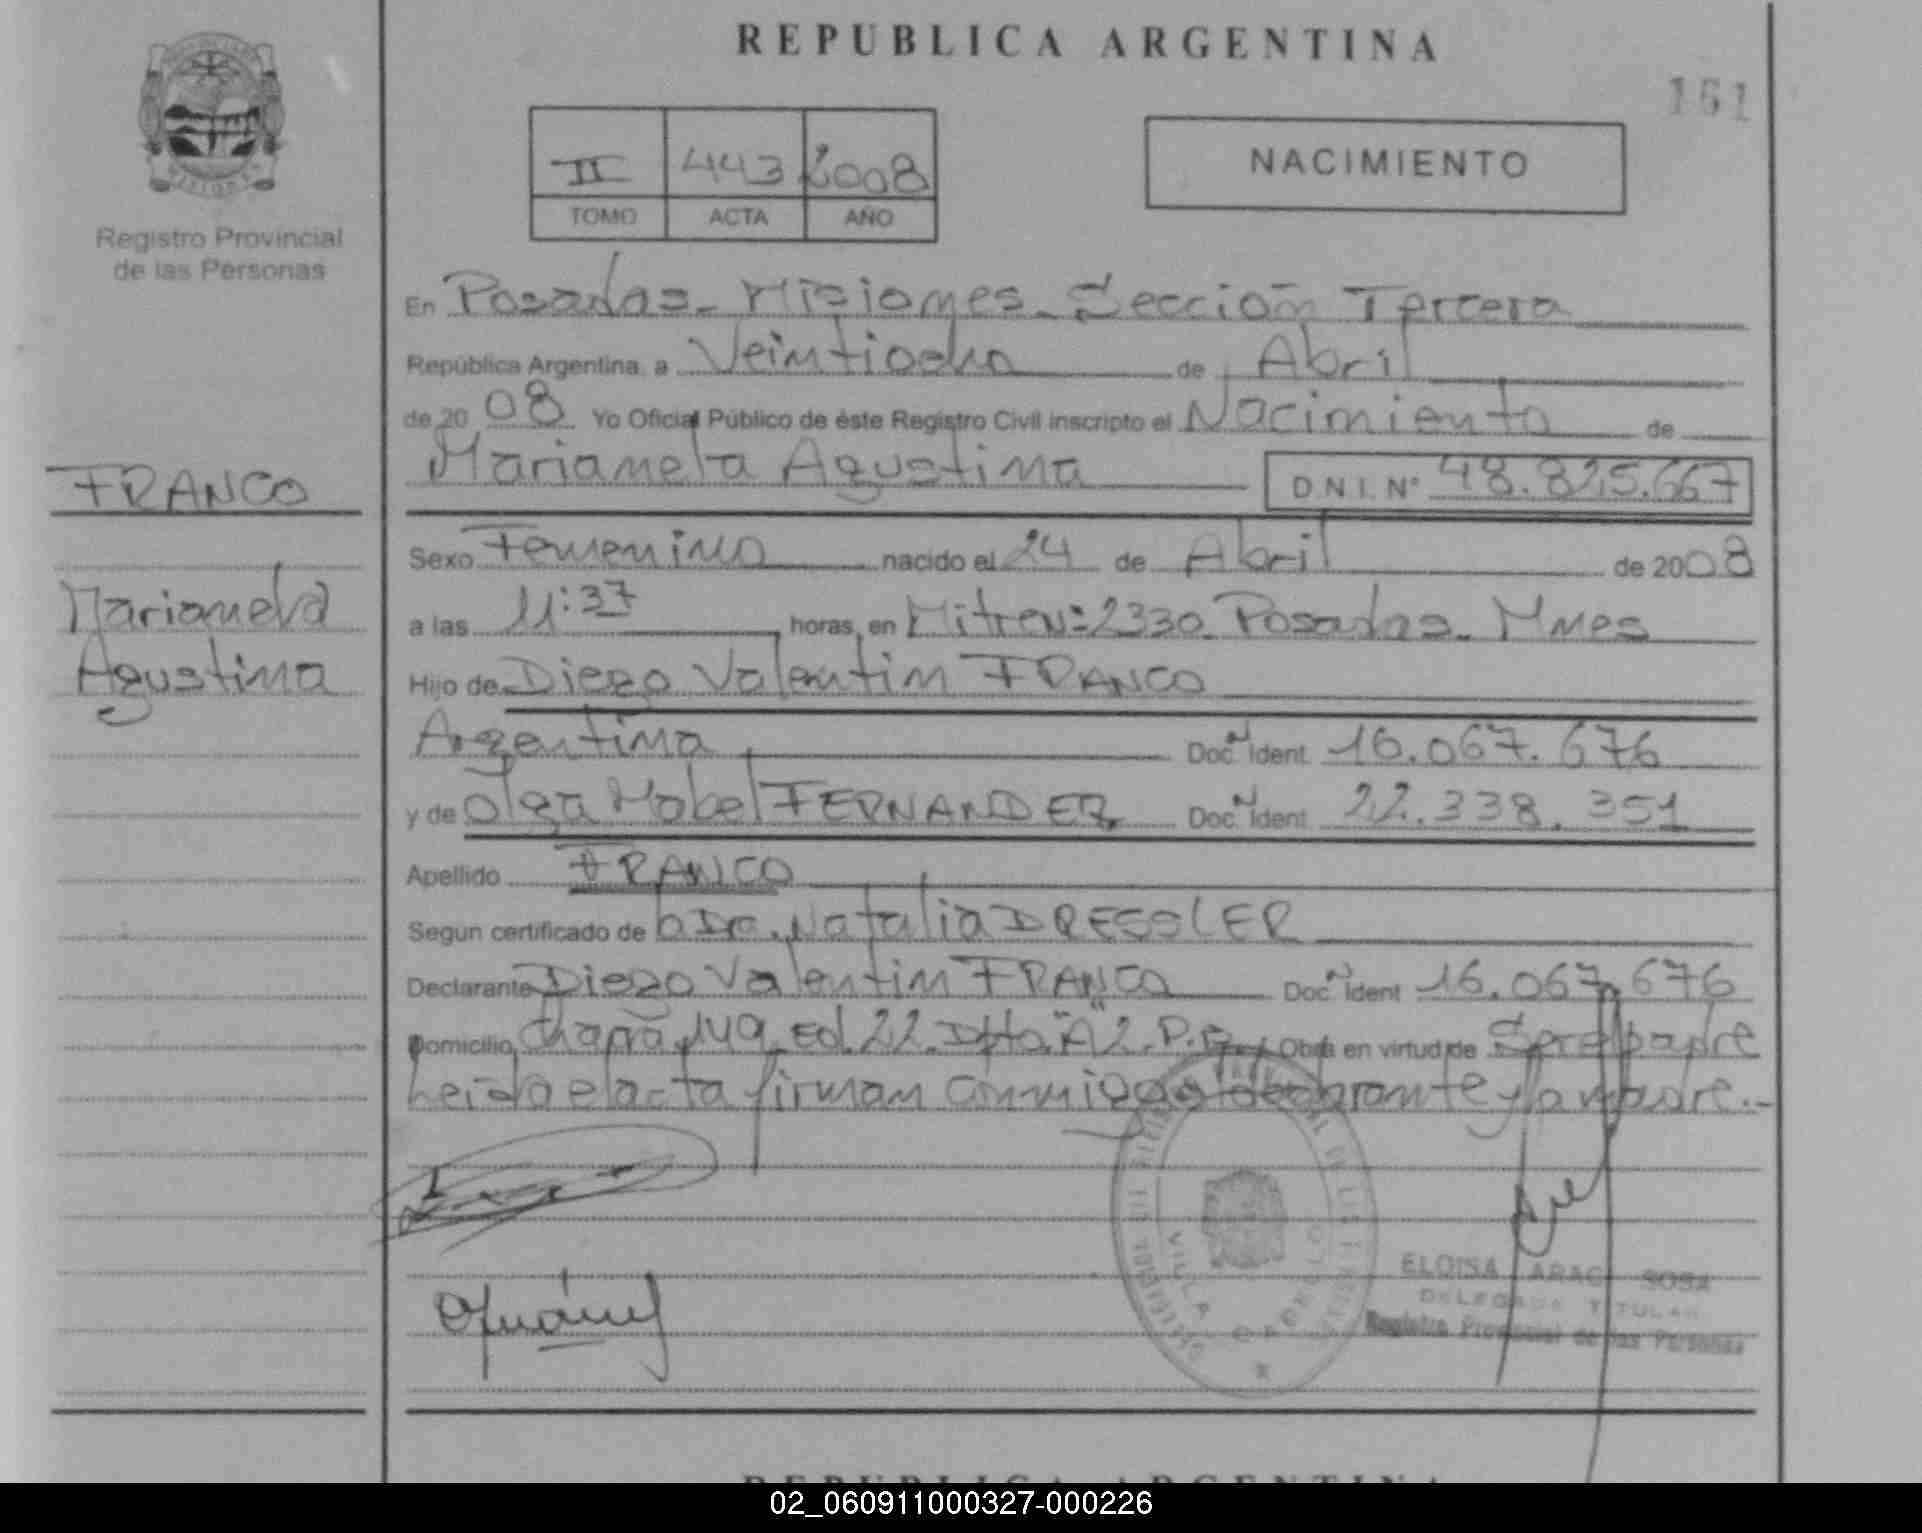 REPUBLICA ARGENTINA
151
II 443 2008
TOMO ACTA AÑO
NACIMIENTO
MISIONES
Registro Provincial
de las Personas
En Posadas - Misiones - Sección Tercera
República Argentina, a Veintiocho de Abril
de 2008 Yo Oficial Público de éste Registro Civil inscripto el Nacimiento de
Marianela Agustina D.N.I. Nº 48.825.667
FRANCO
Marianela
Agustina
Sexo Femenino nacido el 24 de Abril de 2008
a las 11:37 horas, en Mitre Nº 2330 Posadas - Mnes
Hijo de Diego Valentin FRANCO
Argentina Doc. Ident 16.067.676
y de Olga Mabel FERNANDEZ Doc. Ident 22.338.351
Apellido FRANCO
Segun certificado de la Dra. Natalia DRESSLER
Declarante Diego Valentin FRANCO Doc. Ident 16.067.676
Domicilio Chacra 149 Ed. 22 Dpto "A" 2 P. Obra en virtud de Ser el padre
Leída el acta firman conmigo el declarante y la madre.-
VILLA CABELLO
ELOISA SOSA
DELEGADA TITULAR
Registro Provincial de las Personas
REPUBLICA ARGENTINA
02_060911000327-000226